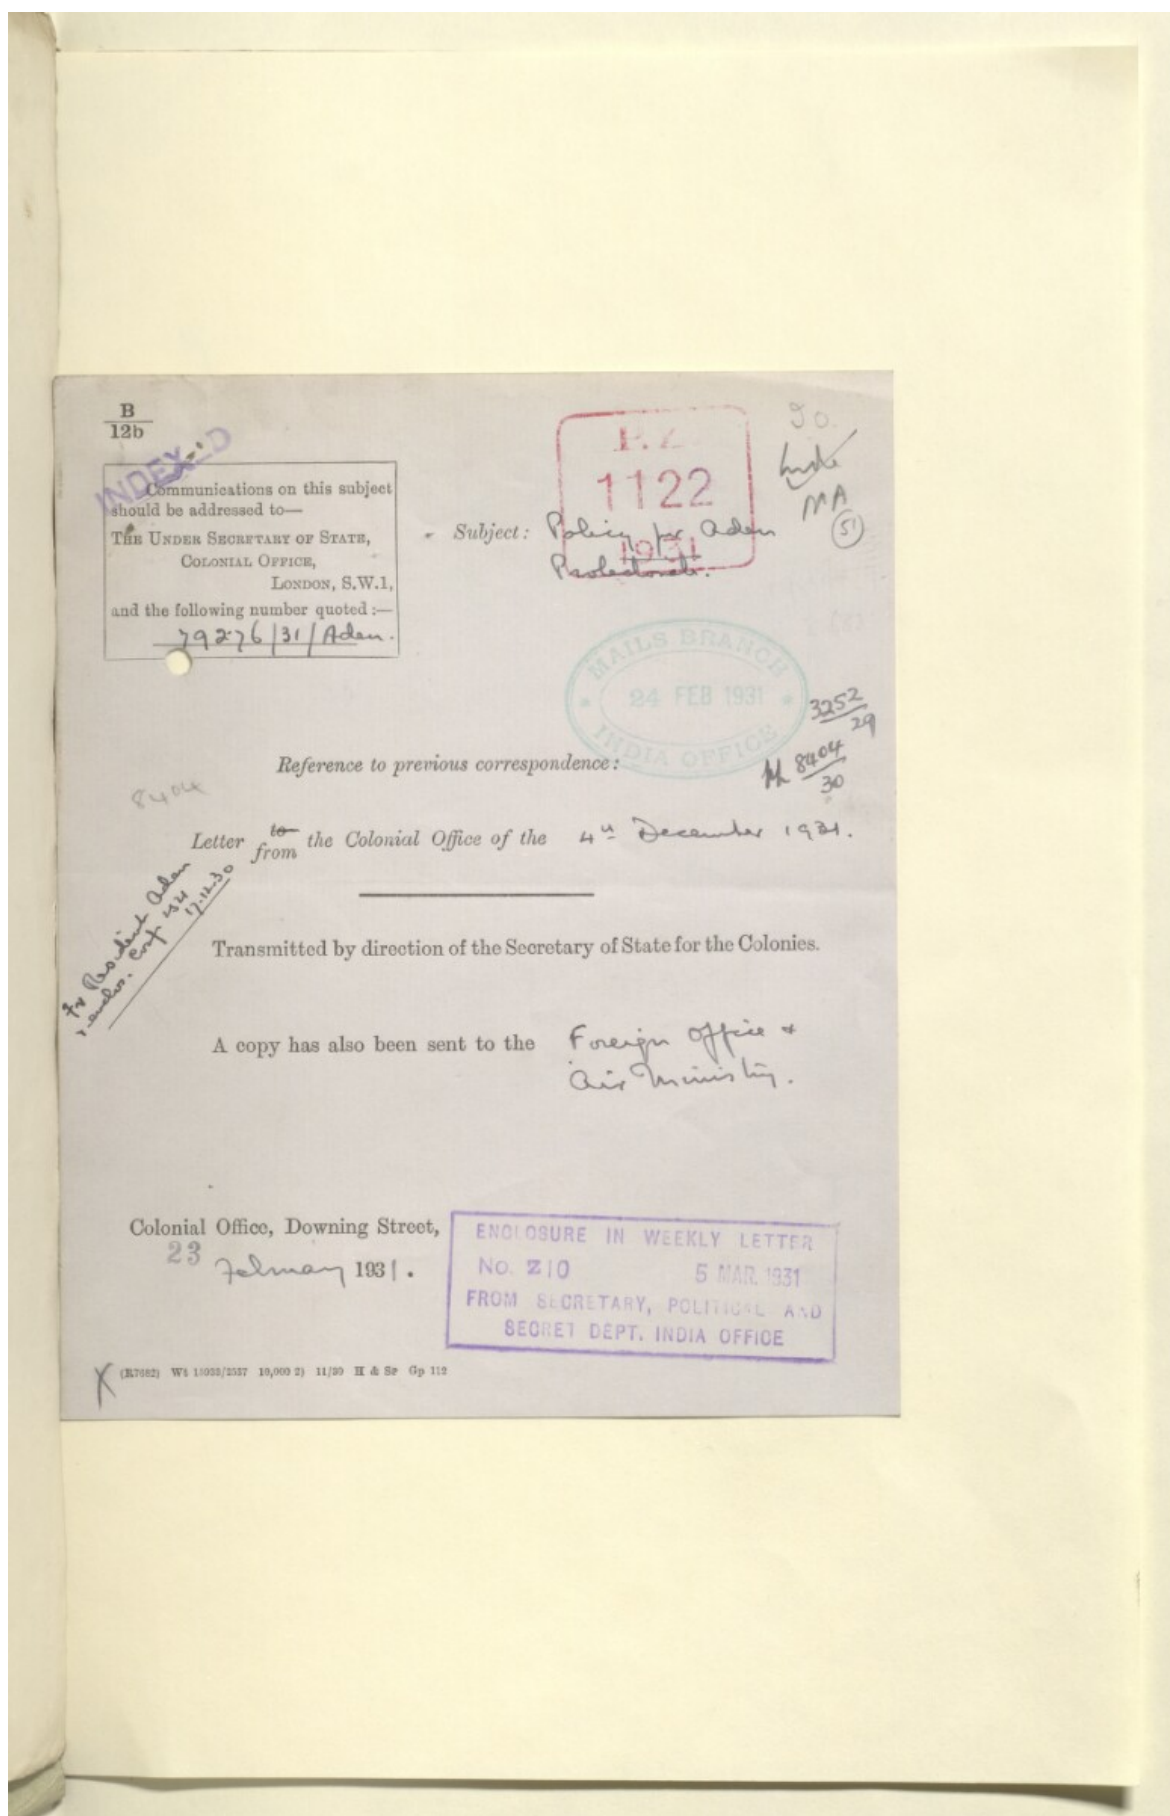 B
12b
INDEXED
Communications on this subject
should be addressed to—
THE UNDER SECRETARY OF STATE,
COLONIAL OFFICE,
LONDON, S.W.1,
and the following number quoted :—
79276/31/Aden.
P.Z.
1122
1931
MA
51
Subject: Policy for Aden
Protectorate.
MAILS BRANCH
24 FEB 1931
INDIA OFFICE
3252
29
8404
30
Reference to previous correspondence:
8404
Letter to from the Colonial Office of the 4th December 1931.
Fr Resident Aden
17.12.30
Transmitted by direction of the Secretary of State for the Colonies.
A copy has also been sent to the Foreign Office &
Air Ministry.
Colonial Office, Downing Street,
23 February 1931.
ENCLOSURE IN WEEKLY LETTER
No. Z10 5 MAR. 1931
FROM SECRETARY, POLITICAL AND
SECRET DEPT. INDIA OFFICE
X
(R7662) 10,000 2) 11/30 H & Sp Gp 112